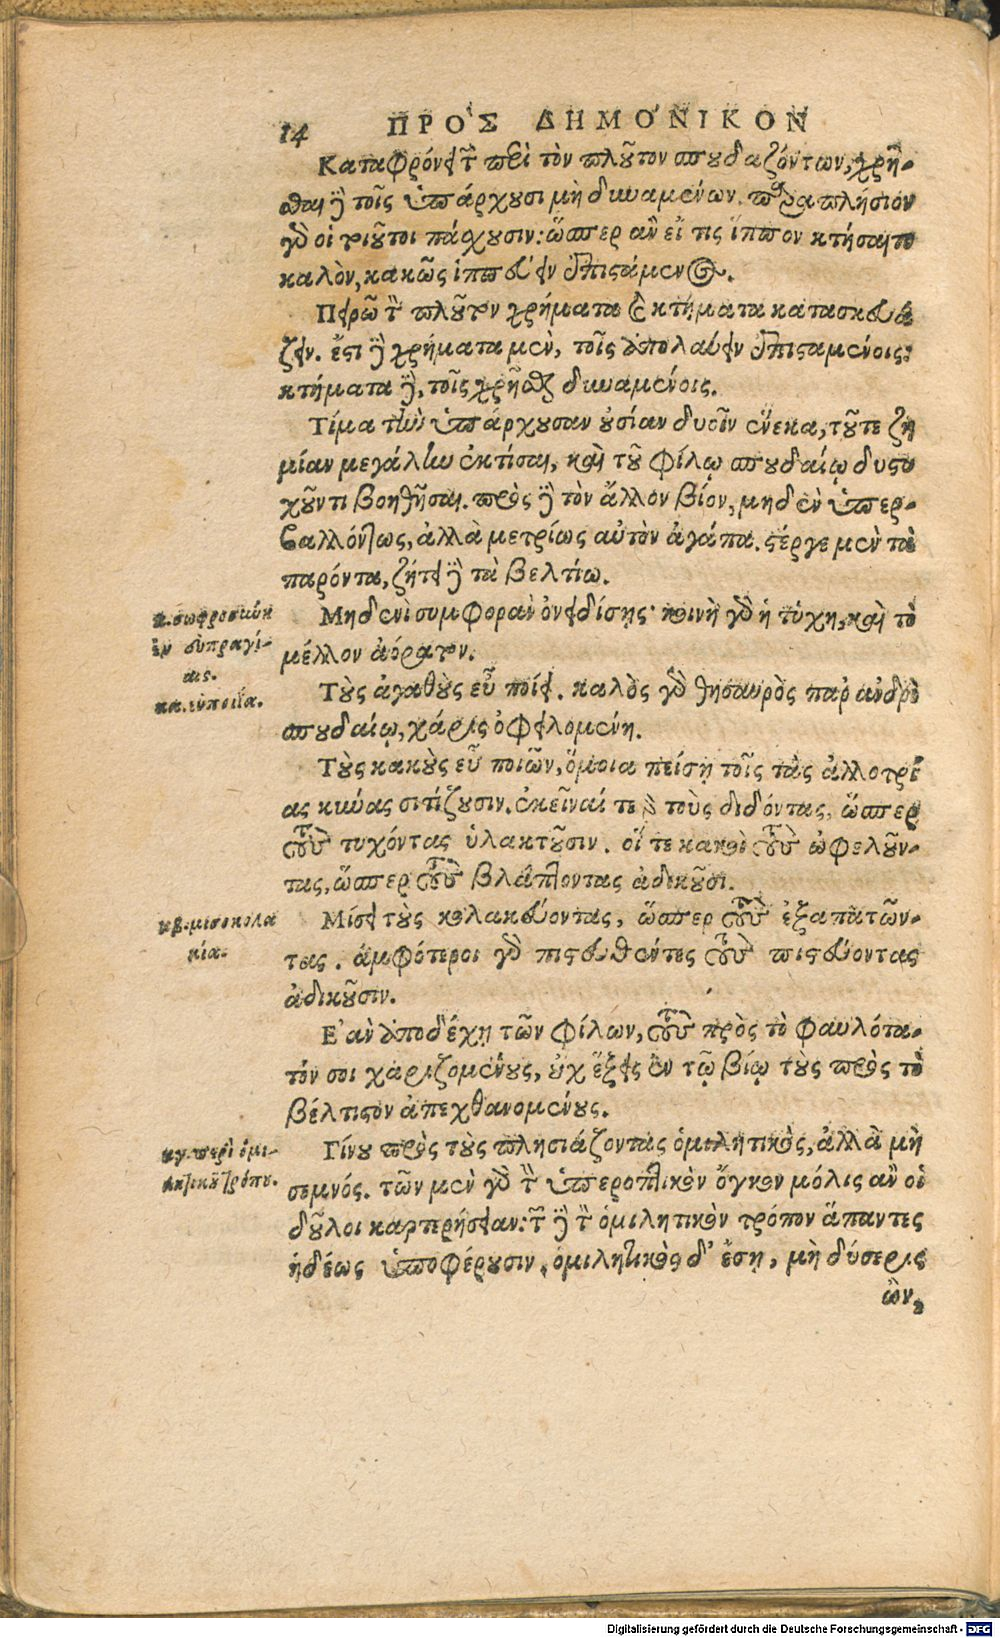 14 ΠΡΟ'Σ ΔΗΜΟ'ΝΙΚΟΝ
Καταφρόνει τῶν περὶ τὸν πλοῦτον σπουδαζόντων, χρῆ-
σθαι δὲ τοῖς ὑπάρχουσι μὴ δυναμένων. παραπλήσιον
γὰρ οἱ τοιοῦτοι πάσχουσιν: ὥσπερ ἂν εἴ τις ἵππον κτήσαιτο
καλὸν, κακῶς ἱππεύειν ἐπιστάμενος.
Πειρῶ τὸν πλοῦτον χρήματα καὶ κτήματα κατασκευά
ζειν. ἔστι δὲ χρήματα μὲν, τοῖς ἀπολαύειν ἐπισταμένοις:
κτήματα δὲ, τοῖς χρῆσθαι δυναμένοις.
Τίμα τὴν ὑπάρχουσαν οὐσίαν δυοῖν ἕνεκα, τοῦτε ζη
μίαν μεγάλην ἐκτίσαι, καὶ τοῦ φίλῳ σπουδαίῳ δυστυ
χοῦντι βοηθῆσαι. πρὸς δὲ τὸν ἄλλον βίον, μηδὲν ὑπερ-
βαλλόντως, ἀλλὰ μετρίως αὐτὸν ἀγάπα. στέργε μὲν τὰ
παρόντα, ζήτει δὲ τὰ βελτίω.
κ. σωφροσύνη
ἐν εὐπραγί-
αις.
Μηδενὶ συμφορὰν ὀνειδίσῃς· κοινὴ γὰρ ἡ τύχη, καὶ τὸ
μέλλον ἀόρατον.
κα. εὐποιΐα.
Τοὺς ἀγαθοὺς εὖ ποίει. καλὸς γὰρ θησαυρὸς παρ ἀνδρὶ
σπουδαίῳ, χάρις ὀφειλομένη.
Τοὺς κακοὺς εὖ ποιῶν, ὅμοια πείσῃ τοῖς τὰς ἀλλοτρί
ας κύνας σιτίζουσιν. ἐκεῖναί τε γὰρ τοὺς διδόντας, ὥσπερ
τοὺς τυχόντας ὑλακτοῦσιν. οἵ τε κακοὶ τοὺς ὠφελοῦν-
τας, ὥσπερ τοὺς βλάπτοντας ἀδικοῦσι.
κβ. μισοκολα
κία.
Μίσει τοὺς κολακεύοντας, ὥσπερ τοὺς ἐξαπατῶν-
τας. ἀμφότεροι γὰρ πιστευθέντες τοὺς πιστεύοντας
ἀδικοῦσιν.
Ε'ὰν ἀποδέχῃ τῶν φίλων, τοὺς πρὸς τὸ φαυλότα-
τόν σοι χαριζομένους, οὐχ ἕξεις ἐν τῷ βίῳ τοὺς πρὸς τὸ
βέλτιστον ἀπεχθανομένους.
κγ. περὶ ὁμι-
λητικοῦ τρόπου.
Γίνου πρὸς τοὺς πλησιάζοντας ὁμιλητικὸς, ἀλλὰ μὴ
σεμνός. τῶν μὲν γὰρ τὸν ὑπεροπτικὸν ὄγκον μόλις ἂν οἱ
δοῦλοι καρτερήσειαν: τῶν δὲ τὸν ὁμιλητικὸν τρόπον ἅπαντες
ἡδέως ὑποφέρουσιν, ὁμιλητικὸς δ' ἔσῃ, μὴ δύσερις
ὢν,
Digitalisierung gefördert durch die Deutsche Forschungsgemeinschaft - DFG